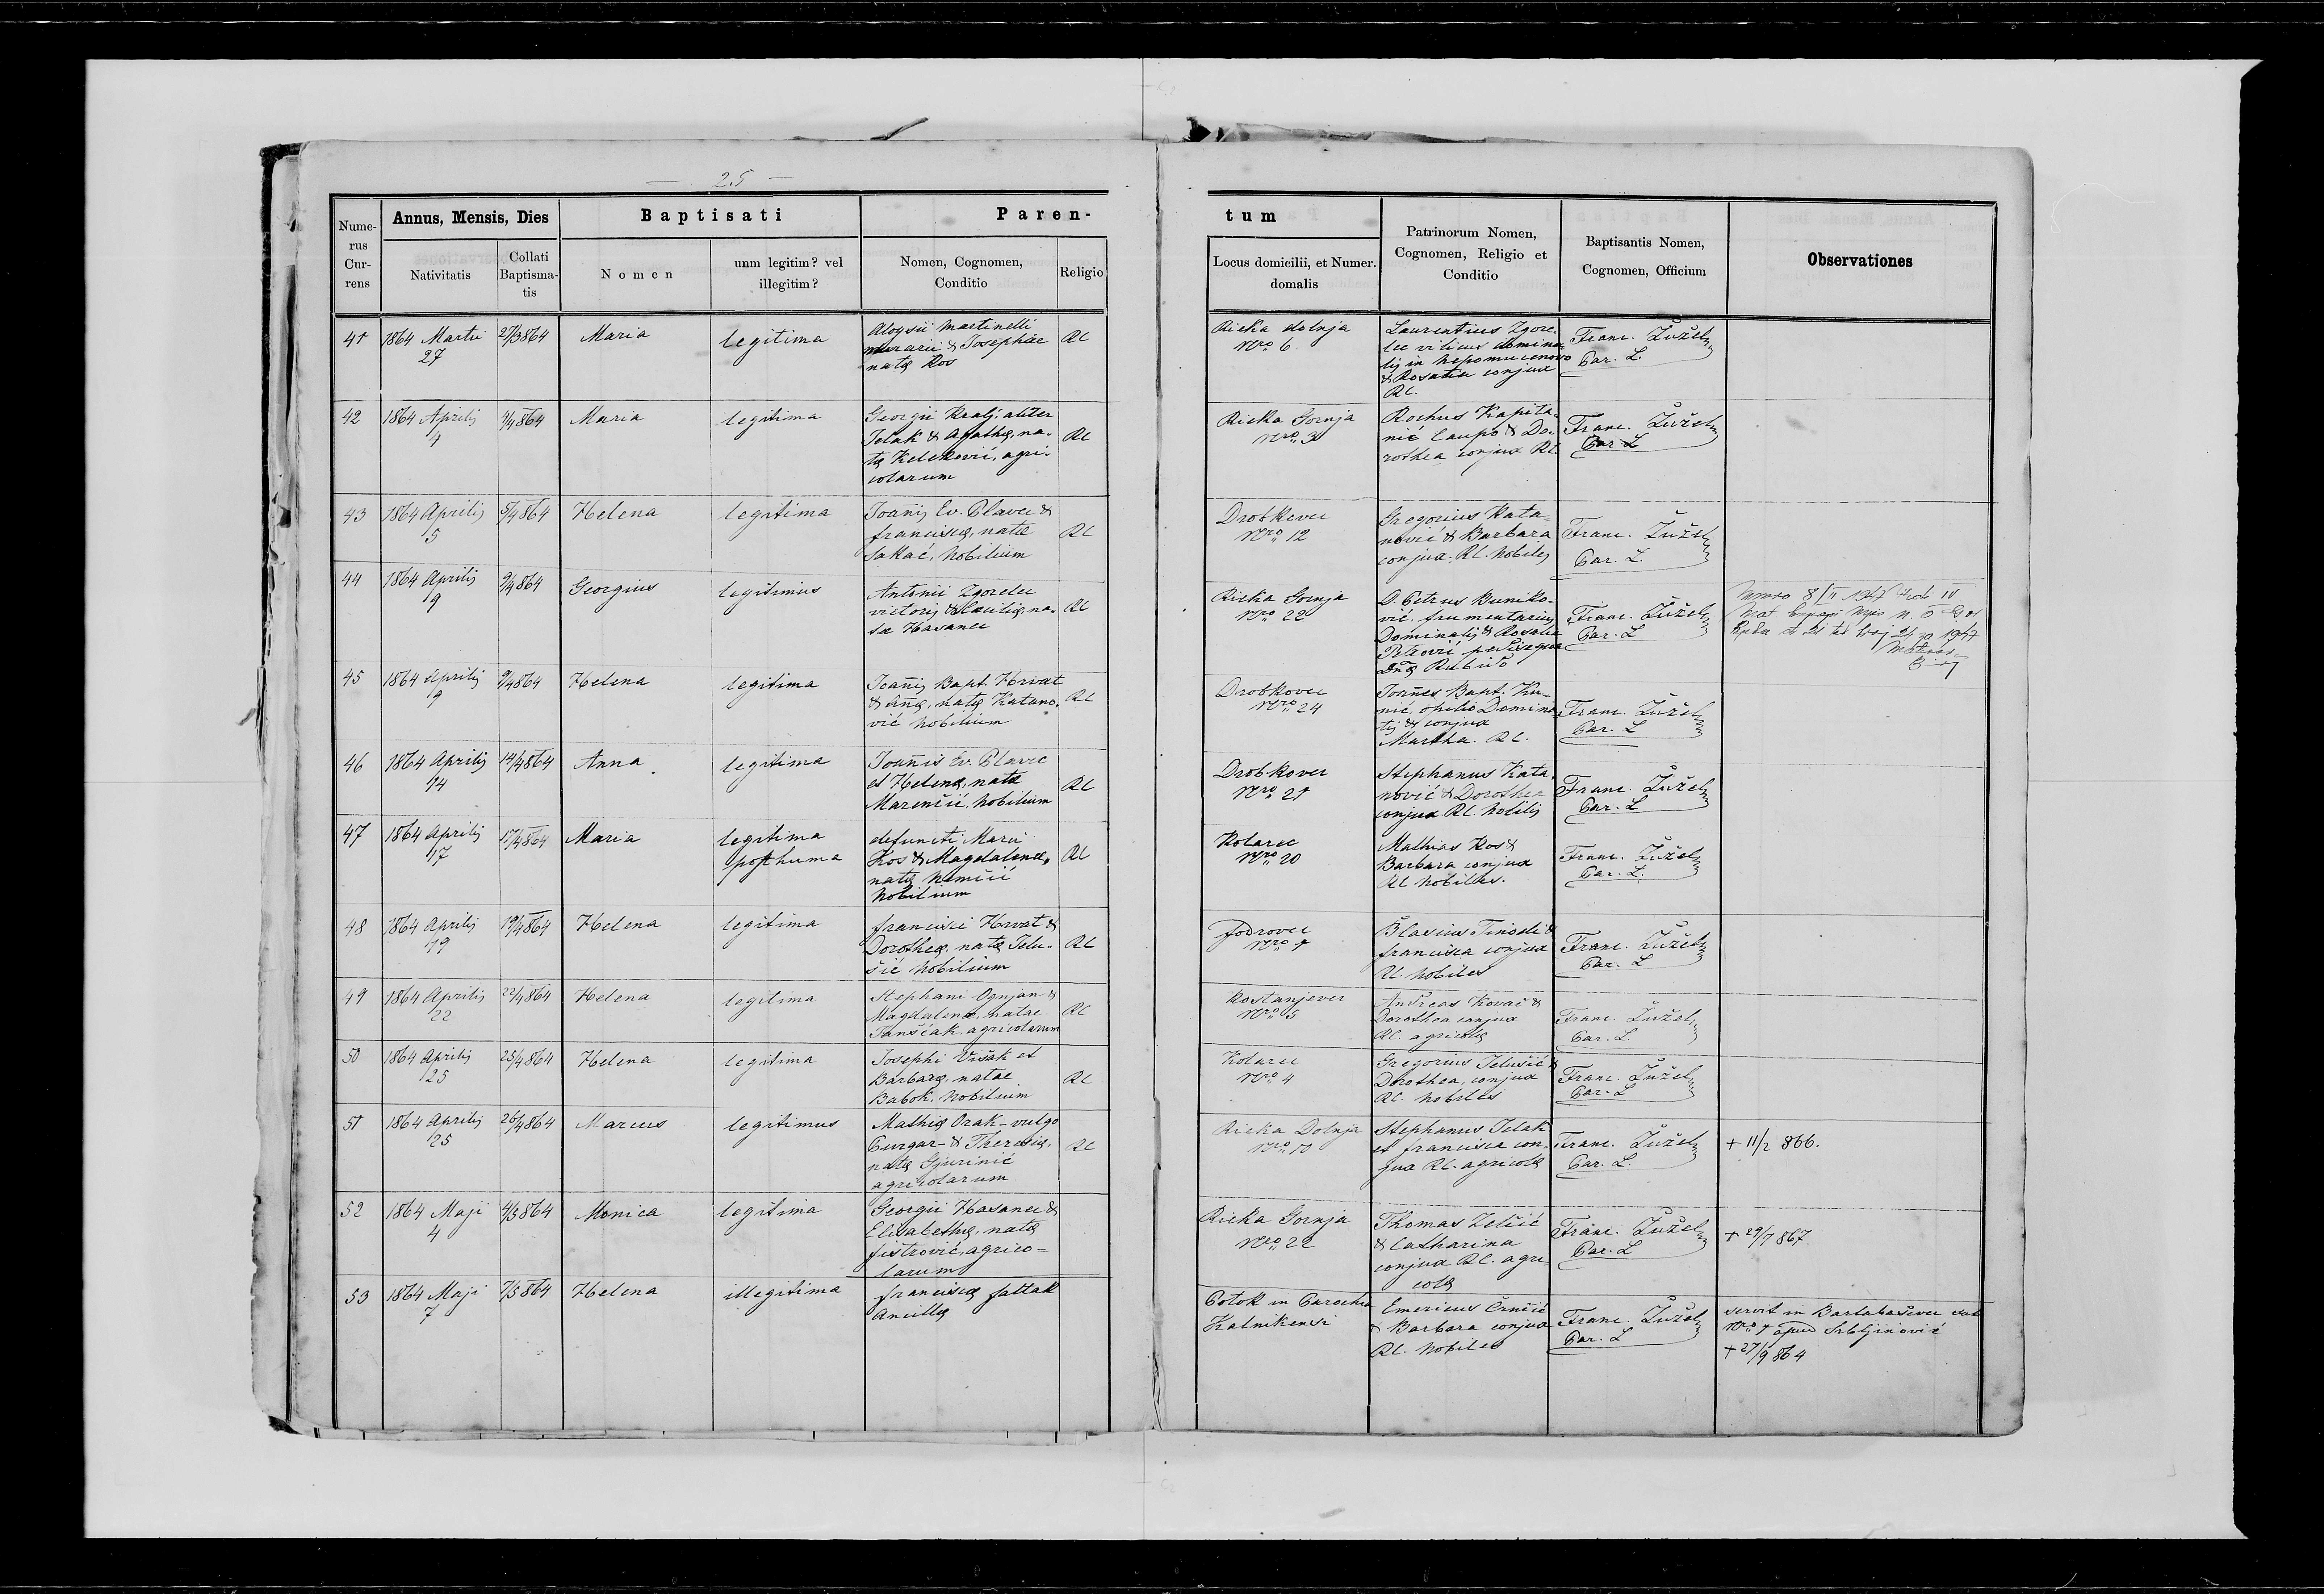 — 25 —
Nume-
rus
Cur-
rens
Annus, Mensis, Dies
Nativitatis
Collati
Baptisma-
tis
Baptisati
Nomen
unm legitim? vel
illegitim?
Paren-
Nomen, Cognomen,
Conditio
Religio
tum
Locus domicilii, et Numer.
domalis
Patrinorum Nomen,
Cognomen, Religio et
Conditio
Baptisantis Nomen,
Cognomen, Officium
Observationes
41
1864 Martii
27
27/3 864
Maria
legitima
Aloysii Martinelli
murarii & Josephae
natę Kos
RC
Rieka dolnja
Nro 6
Laurentius Zgore-
lec vilicus domina
lis in Nepomucenovo
& Rosalia conjux
RC.
Franc. Žužel
Par. L.
42
1864 Aprilis
4
4/4 864
Maria
legitima
Georgii Kralj, aliter
Jelak & Agathę, na-
tę Keleković, agri-
colarum
RC
Rieka Gornja
Nro 3
Rochus Kapita-
nić caupo & Do-
rothea conjux RC.
Franc. Žužel
Par. L
43
1864 Aprilis
5
5/4 864
Helena
legitima
Joañis Ev. Plavec &
Franciscę, natę
Sakač, Nobilium
RC
Drobkovec
Nro 12
Gregorius Kata-
nović & Barbara
conjux, RC. Nobiles
Franc. Žužel
Par. L.
44
1864 Aprilis
9
9/4 864
Georgius
legitimus
Antonii Zgorelec
victoris & Cecilię na-
tę Hasanec
RC
Rieka Gornja
Nro 22
D. Petrus Buniko-
vić, frumentarius
Dominalis & Rosalia
Petrović
Dñę Rubido
Franc. Žužel
Par. L
8/II 1947
1947
45
1864 Aprilis
9
9/4 864
Helena
legitima
Joañis Bapt. Horvat
& Añę, natę Katano-
vić Nobilium
RC
Drobkovec
Nro 24
Joañes Bapt. Ku-
nić, opilio Domina
lis & conjux
Martha. RC.
Franc. Žužel
Par. L
46
1864 Aprilis
14
14/4 864
Anna
legitima
Joañis Ev. Plavec
et Helenę, natę
Marenčić, Nobilium
RC
Drobkovec
Nro 21
Stephanus Kata-
nović & Dorothea
conjux RC. Nobiles
Franc. Žužel
Par. L
47
1864 Aprilis
17
17/4 864
Maria
legitima
posthuma
defuncti Marci
Kos & Magdalenę,
natę Nemčić
Nobilium
RC
Kolarec
Nro 20
Mathias Kos &
Barbara conjux
RC Nobiles.
Franc. Žužel
Par. L.
48
1864 Aprilis
19
19/4 864
Helena
legitima
Francisci Horvat &
Dorotheę, natę Jelu-
šić Nobilium
RC
Fodrovec
Nro 7
Blasius Tinodi &
Francisca conjux
RC. Nobiles
Franc. Žužel
Par. L
49
1864 Aprilis
22
22/4 864
Helena
legitima
Stephani Ognjan &
Magdalenę, natae
Janščak agricolarum
RC
Kostanjevec
Nro 5
Andreas Kovač &
Dorothea conjux
RC. agricolę
Franc. Žužel
Par. L.
50
1864 Aprilis
25
25/4 864
Helena
legitima
Josephi Višak et
Barbarę, natae
Babok, Nobilium
RC
Kolarec
Nro 4
Gregorius Jelušić &
Dorothea, conjux
RC. Nobiles
Franc. Žužel
Par. L
51
1864 Aprilis
25
26/4 864
Marcus
legitimus
Mathię Orak – vulgo
Purgar – & Theresię,
natę Gjurinić
agricolarum
RC
Rieka Dolnja
Nro 10
Stephanus Jelak
et Francisca con-
jux RC. agricolę
Franc. Žužel
Par. L.
+ 11/2 866.
52
1864 Maji
4
4/5 864
Monica
legitima
Georgii Hasanec &
Elisabethę, natę
Fistrović, agrico-
larum
Rieka Gornja
Nro 22
Thomas Zelčić
& Catharina
conjux RC. agri-
colę
Franc. Žužel
Par. L
+ 29/7 867
53
1864 Maji
7
7/5 864
Helena
illegitima
Franciscę Fattak
Ancillę
Potok in Parochia
Kalnikensi
Emericus Črnčić
& Barbara conjux
RC. Nobiles
Franc. Žužel
Par. L
servit in Bartabaševec sub
Nro 7 apud Srbljinović
+ 27/9 864